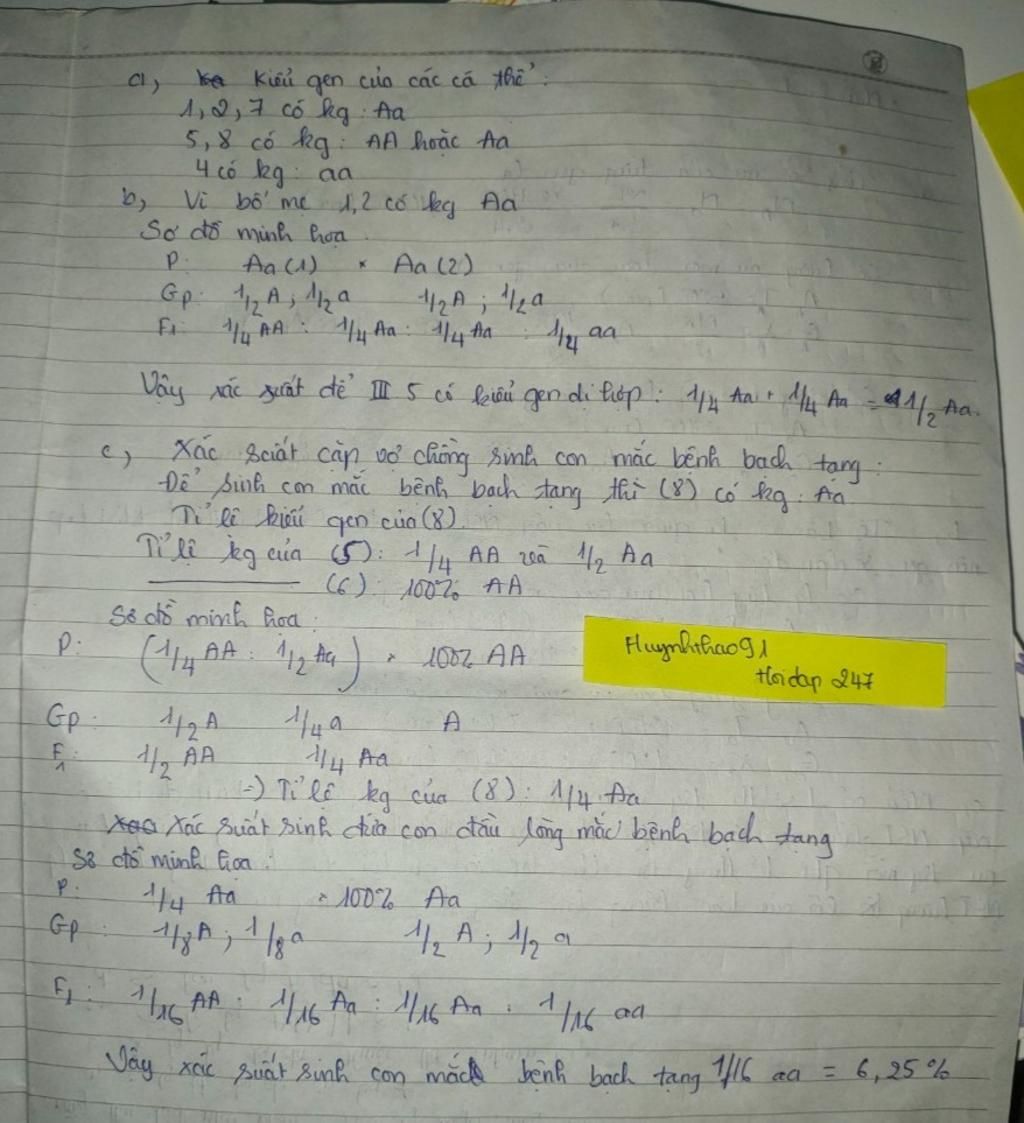 a, Kiểu gen của các cá thể:
1, 2, 7 có kg: Aa
5, 8 có kg: AA hoặc Aa
4 có kg: aa
b, Vì bố mẹ 1,2 có kg Aa
Sơ đồ minh họa.
P: Aa (1) × Aa (2)
Gp: 1/2 A; 1/2 a 1/2 A; 1/2 a
F1: 1/4 AA : 1/4 Aa : 1/4 Aa : 1/4 aa
Vậy xác suất để III 5 có kiểu gen dị hợp: 1/4 Aa + 1/4 Aa = 1/2 Aa.
c, Xác suất cặp vợ chồng sinh con mắc bệnh bạch tạng:
Để sinh con mắc bệnh bạch tạng thì (8) có kg: Aa
Tỉ lệ kiểu gen của (8)
Tỉ lệ kg của (5): 1/4 AA và 1/2 Aa
(6): 100% AA
Sơ đồ minh họa:
P: (1/4 AA : 1/2 Aa) × 100% AA
Huynhthao91
Hoidap 247
Gp: 1/2 A 1/4 a A
F1: 1/2 AA 1/4 Aa
=) Tỉ lệ kg của (8): 1/4 Aa
Xác suất sinh đứa con đầu lòng mắc bệnh bạch tạng
Sơ đồ minh họa:
P: 1/4 Aa × 100% Aa
Gp: 1/8 A; 1/8 a 1/2 A; 1/2 a
F1: 1/16 AA : 1/16 Aa : 1/16 Aa : 1/16 aa
Vậy xác suất sinh con mắc bệnh bạch tạng 1/16 aa = 6,25%